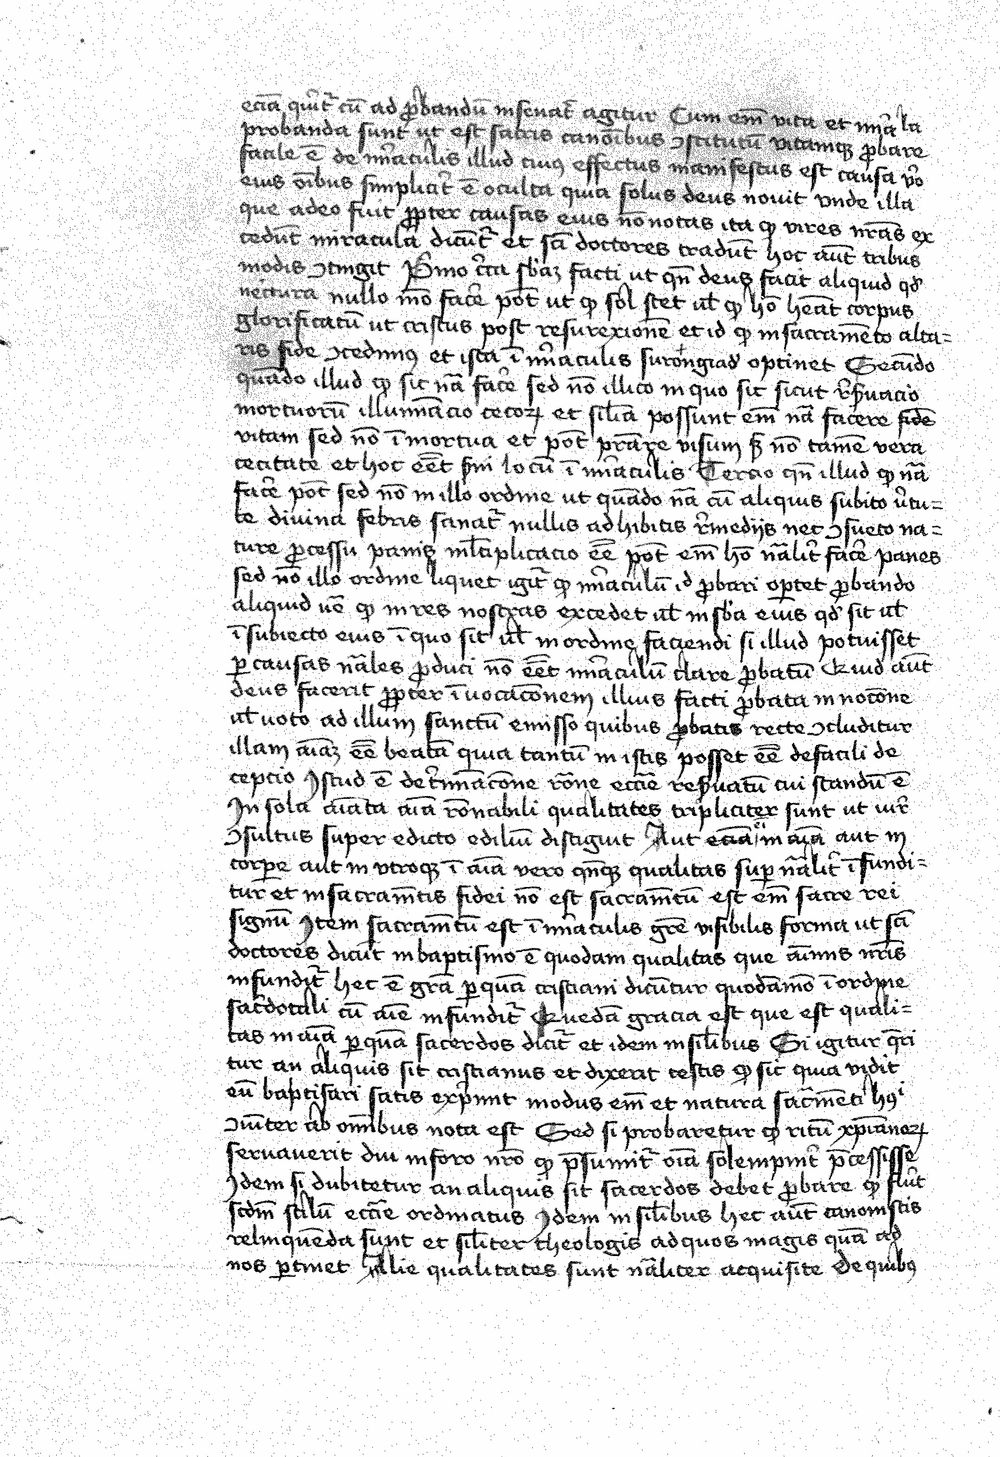 ecia q̄rit᷑ cū ad ꝓbandū inseuat᷑ agitur Cum em̄ vita et mir̄a la
probanda sunt ut est sacris canoībus ↄstitutū vitamqꝫ ꝓbare
facile ē de mir̄aculis illud cuiꝰ effectus manifestus est causa v̓o
eius oībus simplicit᷑ ē oculta quia solus deus novit vnde illa
que adeo fiūt ꝓpter causas eius nō notas ita ꝙ vires nr̄as ex
cedūt miracula dicūt᷑ et sc̄i doctores tradūt hoc aūt tribus
modis ↄtingit P̓mo c̓ca sb̄aꝫ facti ut qn̄ deus facit aliquid qd̓
nectura nullo mō fac̓e pōt ut ꝙ sol stet ul̄ ꝙ hō hēat corpus
glorificatū ut cristus post resurexionē et id ꝙ in sacramēto alta=
ris fide ↄcedimꝰ et ista ī mir̄aculis optinet Secūdo
quādo illud ꝙ sit nā fac̓e sed nō illico in quo sit sicut
mortuorū illuminācio cecoꝝ et sil̄ia possunt em̄ nā facere fidē
vitam sed nō ī mortua et pōt visum sꝫ nō tamē vera
cecitate et hoc locū ī mir̄aculis Tercio qn̄ illud ꝙ nā
fac̓e pōt sed nō in illo ordine ut quādo nā cū aliquis subito v̓tu=
te divina febris sanat᷑ nullis adhibitis r̄medijs nec ↄsueto na=
ture ꝓcessu panis ml̄tiplicacio eē pōt em̄ hō nālit᷑ fac̓e panes
sed nō illo ordine liquet igit᷑ ꝙ mir̄aculū id ꝓbari optet ꝓbando
aliquid uē ꝙ in res nostras excedet ul̄ in sb̄a eius qd̓ sit ul̄
ī subiecto eius ī quo sit ul̄ in ordine faciendi si illud potuisset
ꝑ causas nāles ꝓduci nō eēt mir̄aculū clare ꝓbatū Quid aūt
deus fecerit ꝓpter īuocacōnem illius facti ꝓbata in nocōne
ul̄ uoto ad illum sanctū emisso quibus ꝓbatis recte ↄcluditur
illam aiāꝫ eē beatā quia tantū in istis posset eē defacili de
cepcio Istud ē det̓minacōne rōne eccīe res̓uatū cui standū ē
In sola aīata aīa rōnabili qualitates tripliciter sunt ut iur̄
ↄsultus super edicto ediliū distiguit Aut eciā in aīa aut in
corpe aut in vtroqꝫ ī aīa vero qn̄qꝫ qualitas suꝑnālit᷑ īfundi=
tur et in sacramētis fidei nō est sacramētū est em̄ sacre rei
signū Item sacramētū est ī mir̄aculis gr̄e visibilis forma ut sc̄i
doctores dicūt in baptismo ē quodam qualitas que aīmis nr̄is
infundit᷑ hec ē gr̄a ꝑ quā cristiani dicūtur quodāmō ī ordīe
sac̓dotali cū infundit᷑ Quedā gracia est que est quali=
tas in aīa ꝑ quā sacerdos dicit᷑ et idem in sil̄ibus Si igitur q̄ri
tur an aliquis sit cristianus et dixerit testis ꝙ sic quia vidit
eū baptisari satis exp̓imit modus em̄ et natura sac̓mēti hꝰi
ↄiūter ab omībus nota est Sed si probaretur ꝙ ritū xp̄ianoꝝ
servaverit diu in foro nr̄o ꝙ p̄sumit᷑ oīa solempnit᷑ p̄cessisse
Idem si dubitetur an aliquis sit sacerdos debet ꝓbare ꝙ
scdm̄ stilū eccīe ordinatus Idem in sil̄ibus hec aūt canonistis
relinquēda sunt et sil̄iter theologis ad quos magis quā ad
nos ꝑtinet Alie qualitates sunt nāliter acquisite De quibꝰ